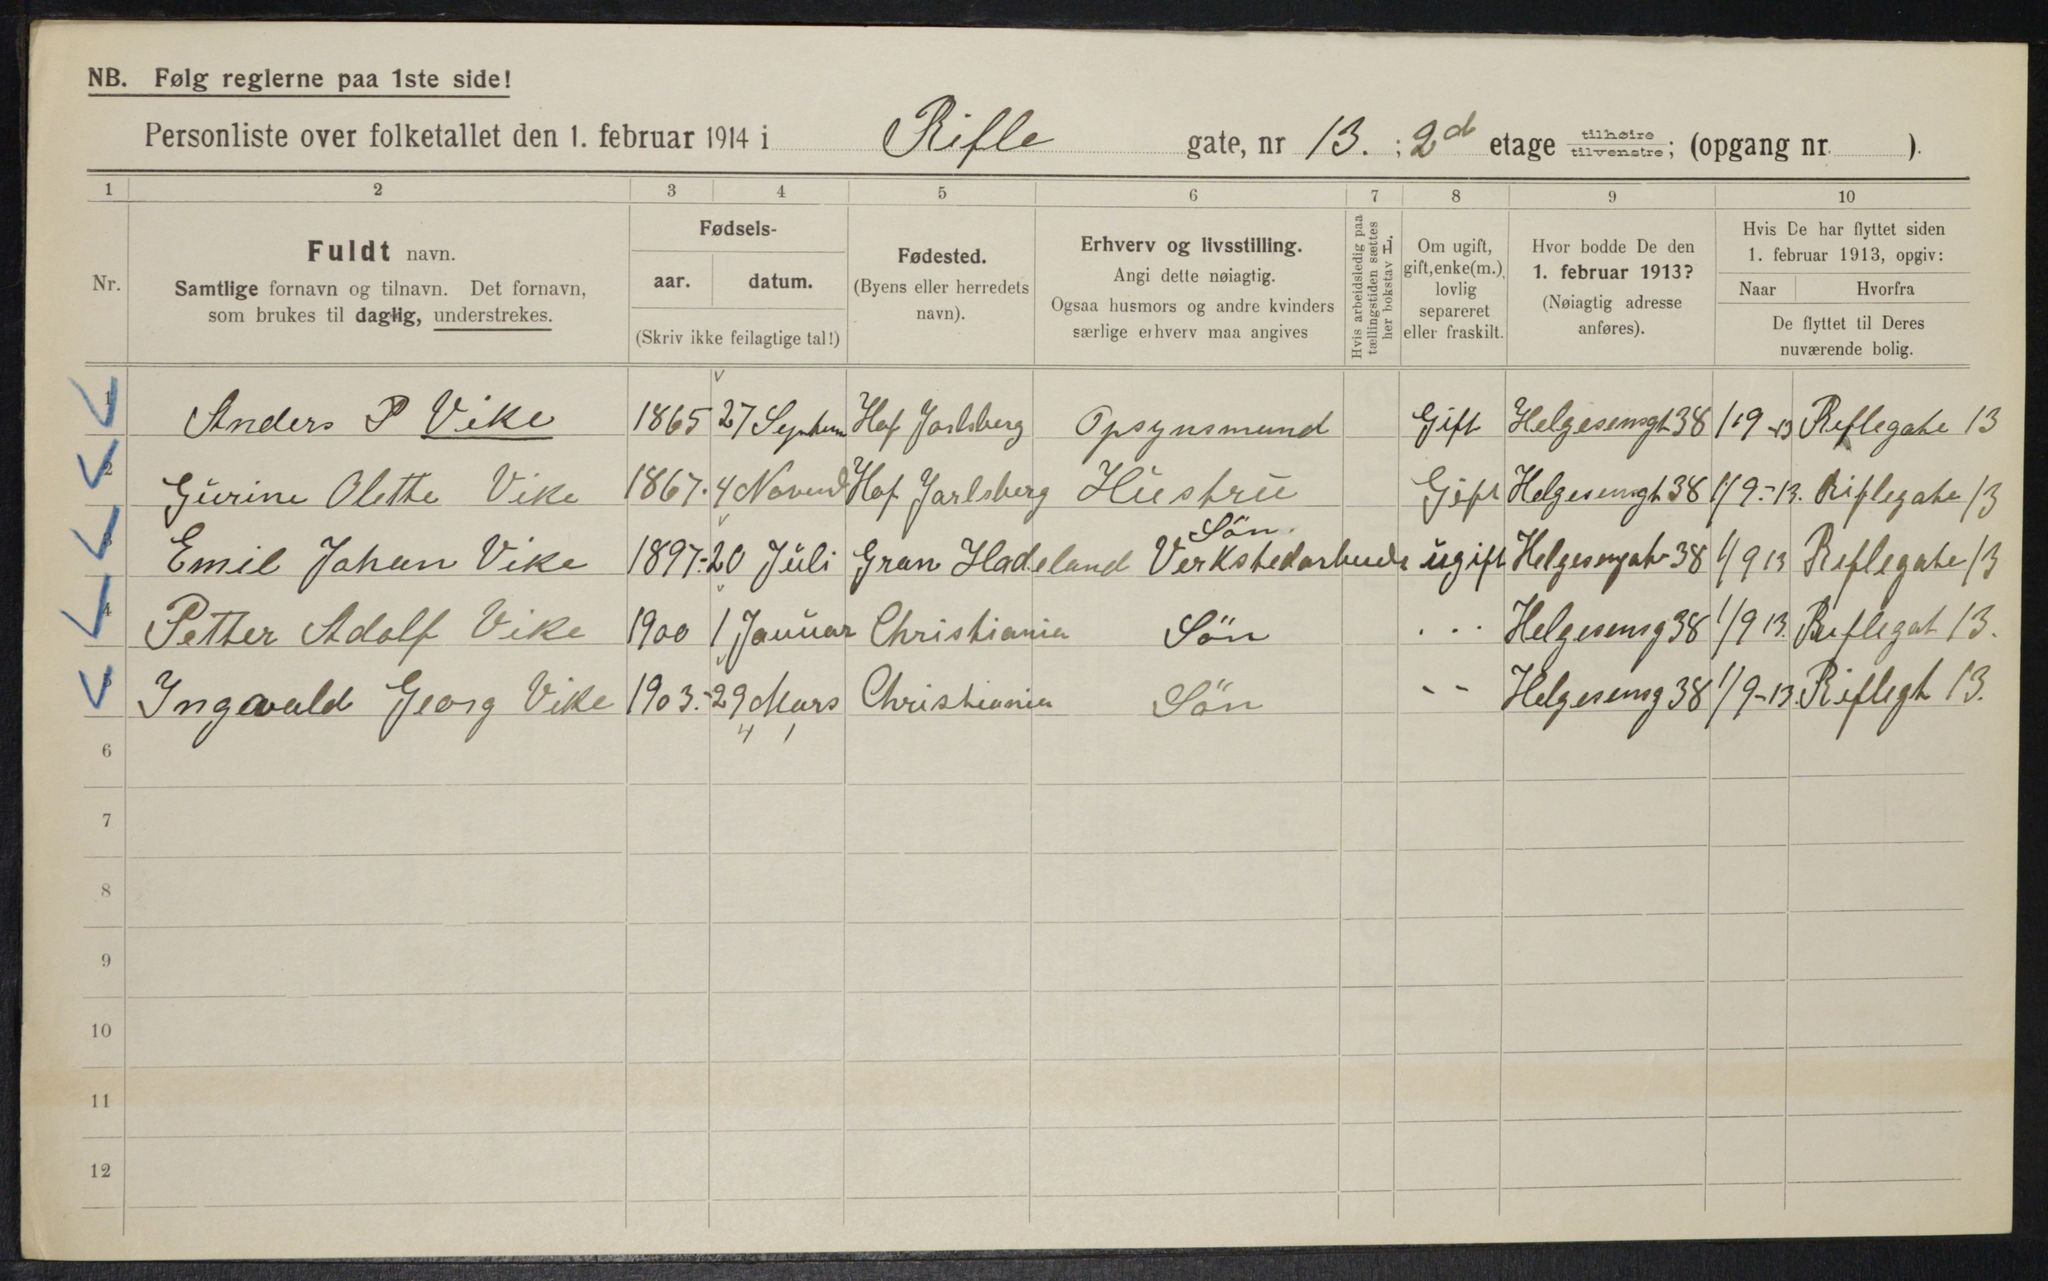 NB. Følg reglerne paa 1ste side!
Personliste over folketallet den 1. februar 1914 i Rifle gate, nr 13. ; 2d etage tilhøire tilvenstre; (opgang nr ).
1 2 3 4 5 6 7 8 9 10
Nr.
Fuldt navn.
Samtlige fornavn og tilnavn. Det fornavn,
som brukes til daglig, understrekes.
Fødsels-
aar. datum.
(Skriv ikke feilagtige tal!)
Fødested.
(Byens eller herredets
navn).
Erhverv og livsstilling.
Angi dette nøiagtig.
Ogsaa husmors og andre kvinders
særlige erhverv maa angives
Hvis arbeidsledig paa
tællingstiden sættes
her bokstav L.
Om ugift,
gift, enke(m.),
lovlig
separeret
eller fraskilt.
Hvor bodde De den
1. februar 1913?
(Nøiagtig adresse
anføres).
Hvis De har flyttet siden
1. februar 1913, opgiv:
Naar Hvorfra
De flyttet til Deres
nuværende bolig.
1 Anders P Vike 1865 27 Septem Hof Jarlsberg Opsynsmand Gift Helgesensgt 38 1/9-13 Riflegate 13
2 Gurine Olette Vike 1867. 4 Novemb Hof Jarlsberg Hustru Gift Helgesensgt 38 1/9-13. Riflegate 13
Sön.
3 Emil Johan Vike 1897- 20 Juli Gran Hadeland Verkstedarbeide ugift Helgesengate 38 1/9 13 Riflegate 13
4 Petter Adolf Vike 1900 1 Januar Christiania Sön . . . Helgesensg 38 1/9 13. Riflegat 13.
5 Ingevald Georg Vike 1903.- 29 Mars Christiania Sön - - Helgesensg 38 1/9-13. Riflegt 13.
4 1
6
7
8
9
10
11
12